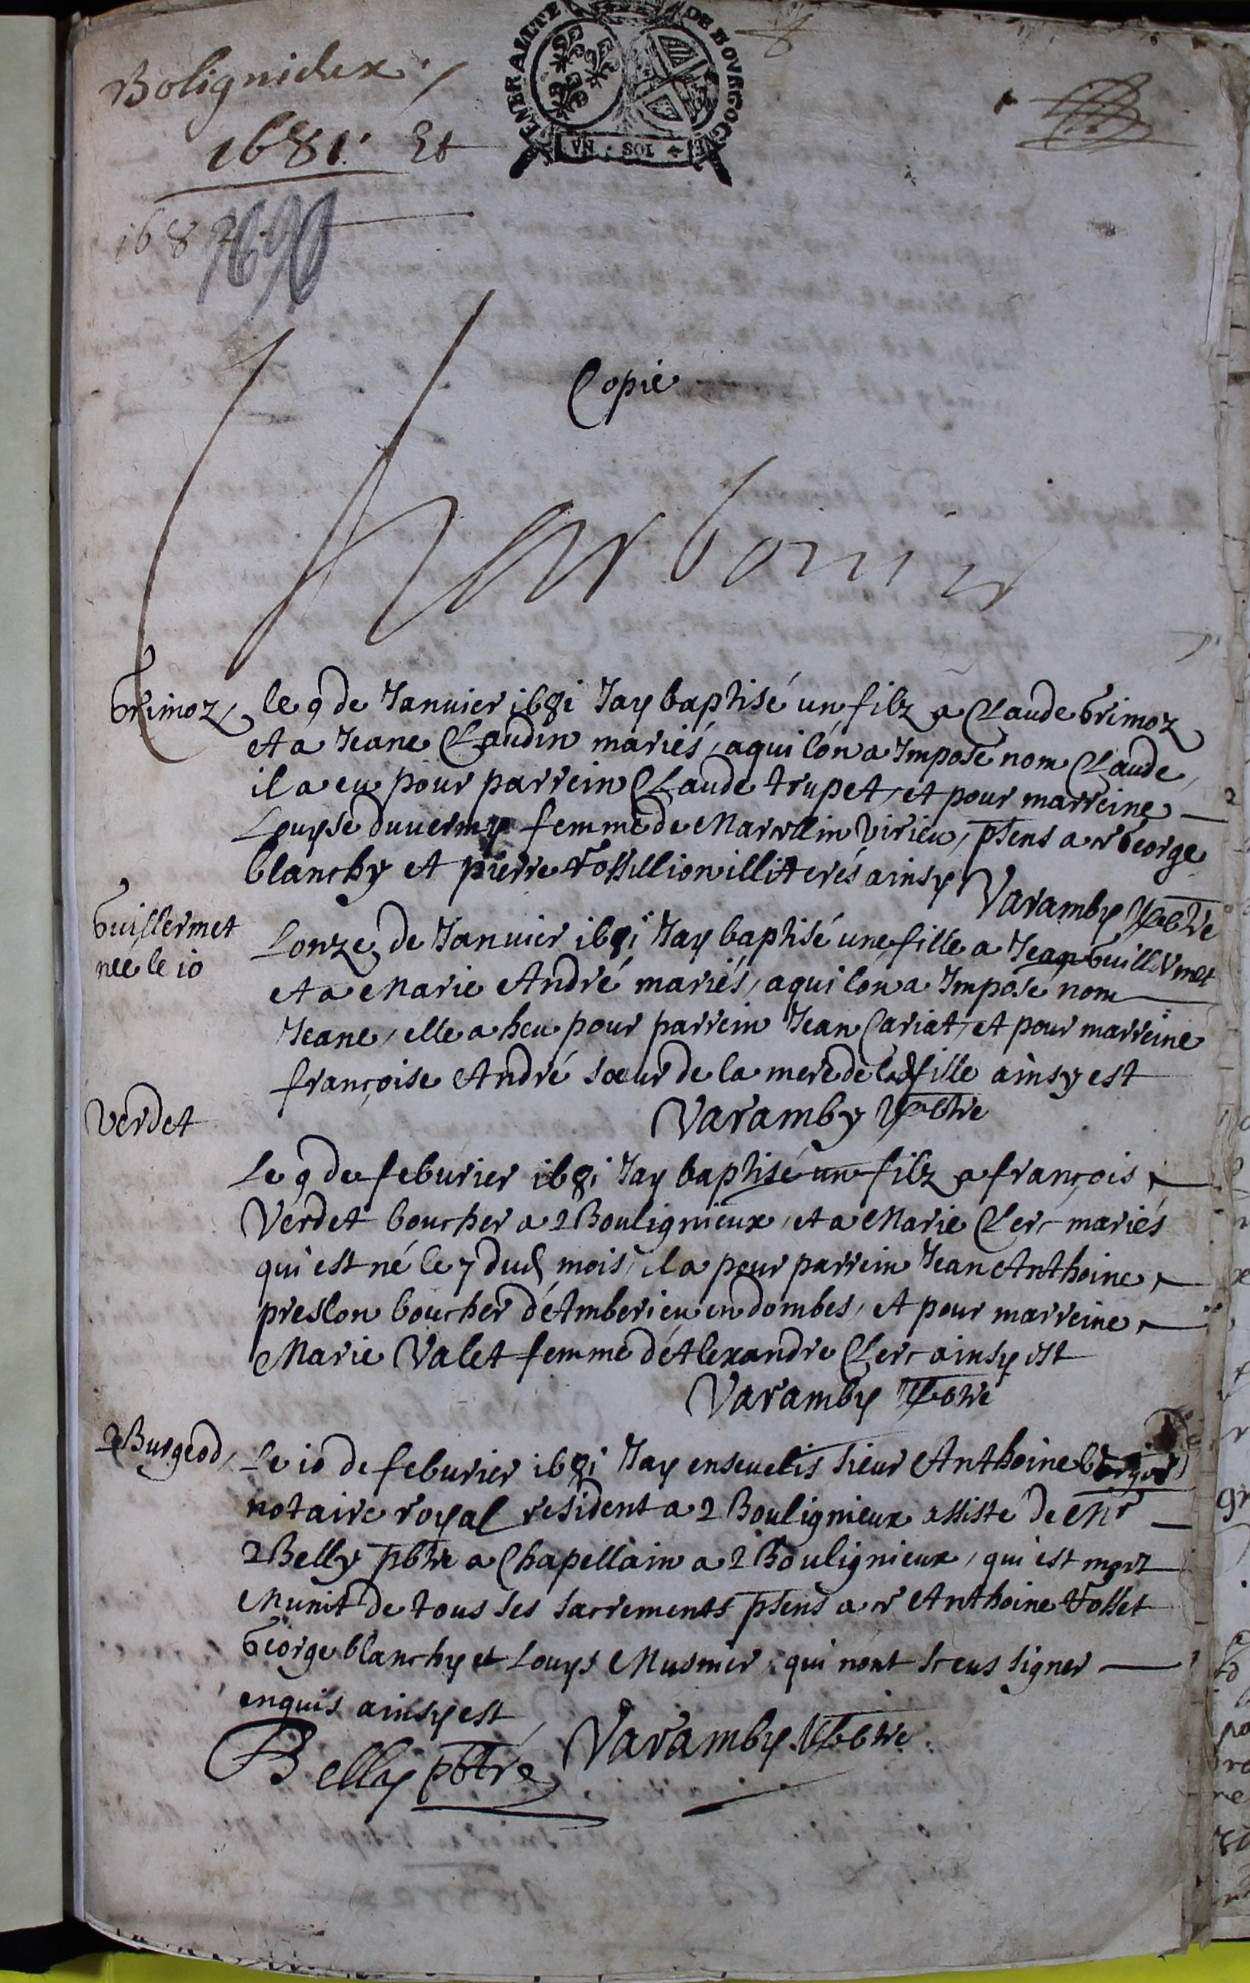 GENERALITE DE BOVRGOGNE
Bolignieux
1681. Et
1682
1690
Copie
Charbonier
Grimoz
le 9 de Januier 1681 Jay baptisé un filz a Claude Grimoz
et a Jeane Claudin mariés, a qui lón a Imposé nom Claude,
il a eu pour parrein Claude trupet, et pour marreine
Louyse duuermy femme de Marcellin Virieu, psens a ce George
blanchy et pierre illiterés ainsy
Varamby pbtre
Guillermet
nee le 10
Lonze de Januier 1681 Jay baptisé une fille a Jean Guillermet
et a Marie André mariés, a qui lón a Imposé nom
Jeane, elle a heu pour parrein Jean Cariat, et pour marreine
françoise André soeur de la mere de lad fille ainsy est
Varamby pbtre
Verdet
Le 9 de feburier 1681 Jay baptisé un filz a françois
Verdet boucher a Boulignieux, et a Marie Clerc mariés
qui est né le 7 dud mois, il a pour parrein Jean Anthoine
preslon boucher d'Amberieu en dombes, et pour marreine
Marie Valet femme d'Alexandre Clerc ainsy est
Varamby pbtre
Burgeod
Le 10 de feburier 1681 Jay enseuelis sieur Anthoine
notaire royal resident a Boulignieux assiste de Mr
Belly pbtre a Chapellain a Boulignieux, qui est mort
Munit de tous ses sacrements psens a ce Anthoine
George blanchy et Louys Musnier, qui nónt sceus signer
enquis ainsy est
Belly pbtre Varamby pbtre